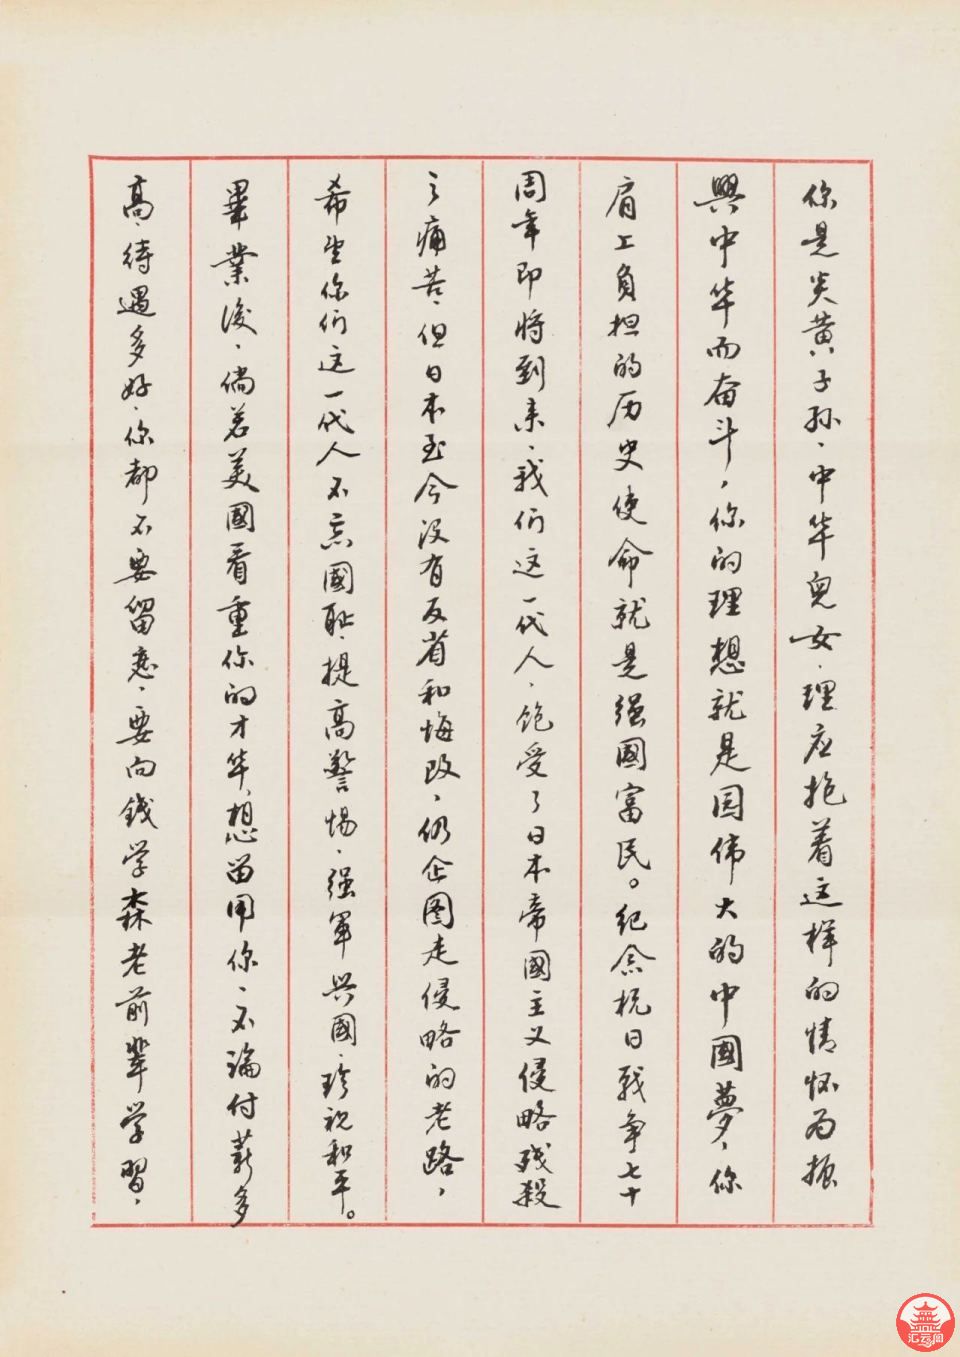 你是炎黄子孙，中华儿女，理应抱着这样的情怀为振
興中华而奋斗，你的理想就是园伟大的中國夢，你
肩上负担的历史使命就是强國富民。纪念抗日战争七十
周年即将到来，我们这一代人，饱受了日本帝國主义侵略残殺
之痛苦，但日本至今没有反省和悔改，仍企图走侵略的老路，
希望你们这一代人不忘國耻，提高警惕，强军兴國，珍视和平。
畢業後，倘若美國看重你的才华，想留用你，不論付薪多
高，待遇多好，你都不要留恋，要向錢学森老前輩学習，
汇云阁